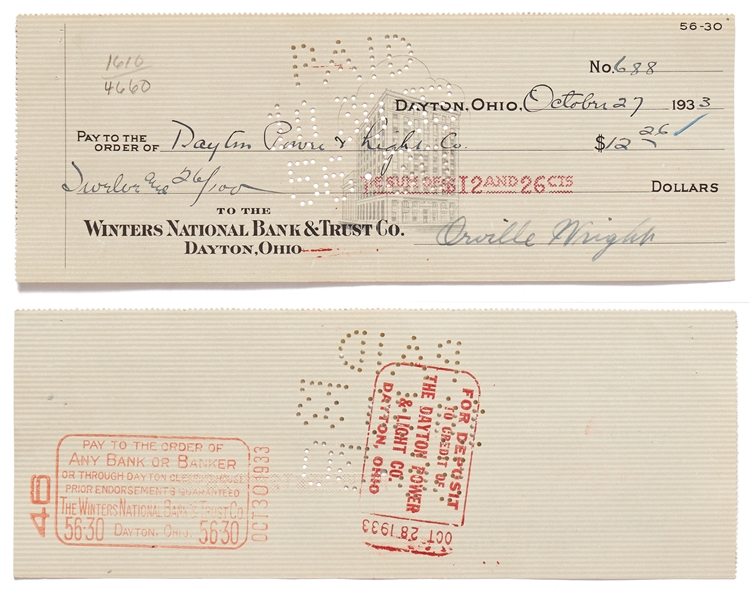 56-30
1616
4660
PAID
No. 688
DAYTON, OHIO, October 27 1933
PAY TO THE
ORDER OF Dayton Power & Light Co. $12 26
Twelve and 26/100 DOLLARS
$12 AND 26 CTS
TO THE
WINTERS NATIONAL BANK & TRUST CO.
DAYTON, OHIO
Orville Wright
PAID
FOR DEPOSIT
TO CREDIT OF
THE DAYTON POWER
& LIGHT CO.
DAYTON, OHIO
OCT 28 1933
46
PAY TO THE ORDER OF
ANY BANK OR BANKER
OR THROUGH DAYTON CLEARING HOUSE
PRIOR ENDORSEMENTS GUARANTEED
THE WINTERS NATIONAL BANK & TRUST CO
56-30 DAYTON, OHIO. 56-30
OCT 30 1933